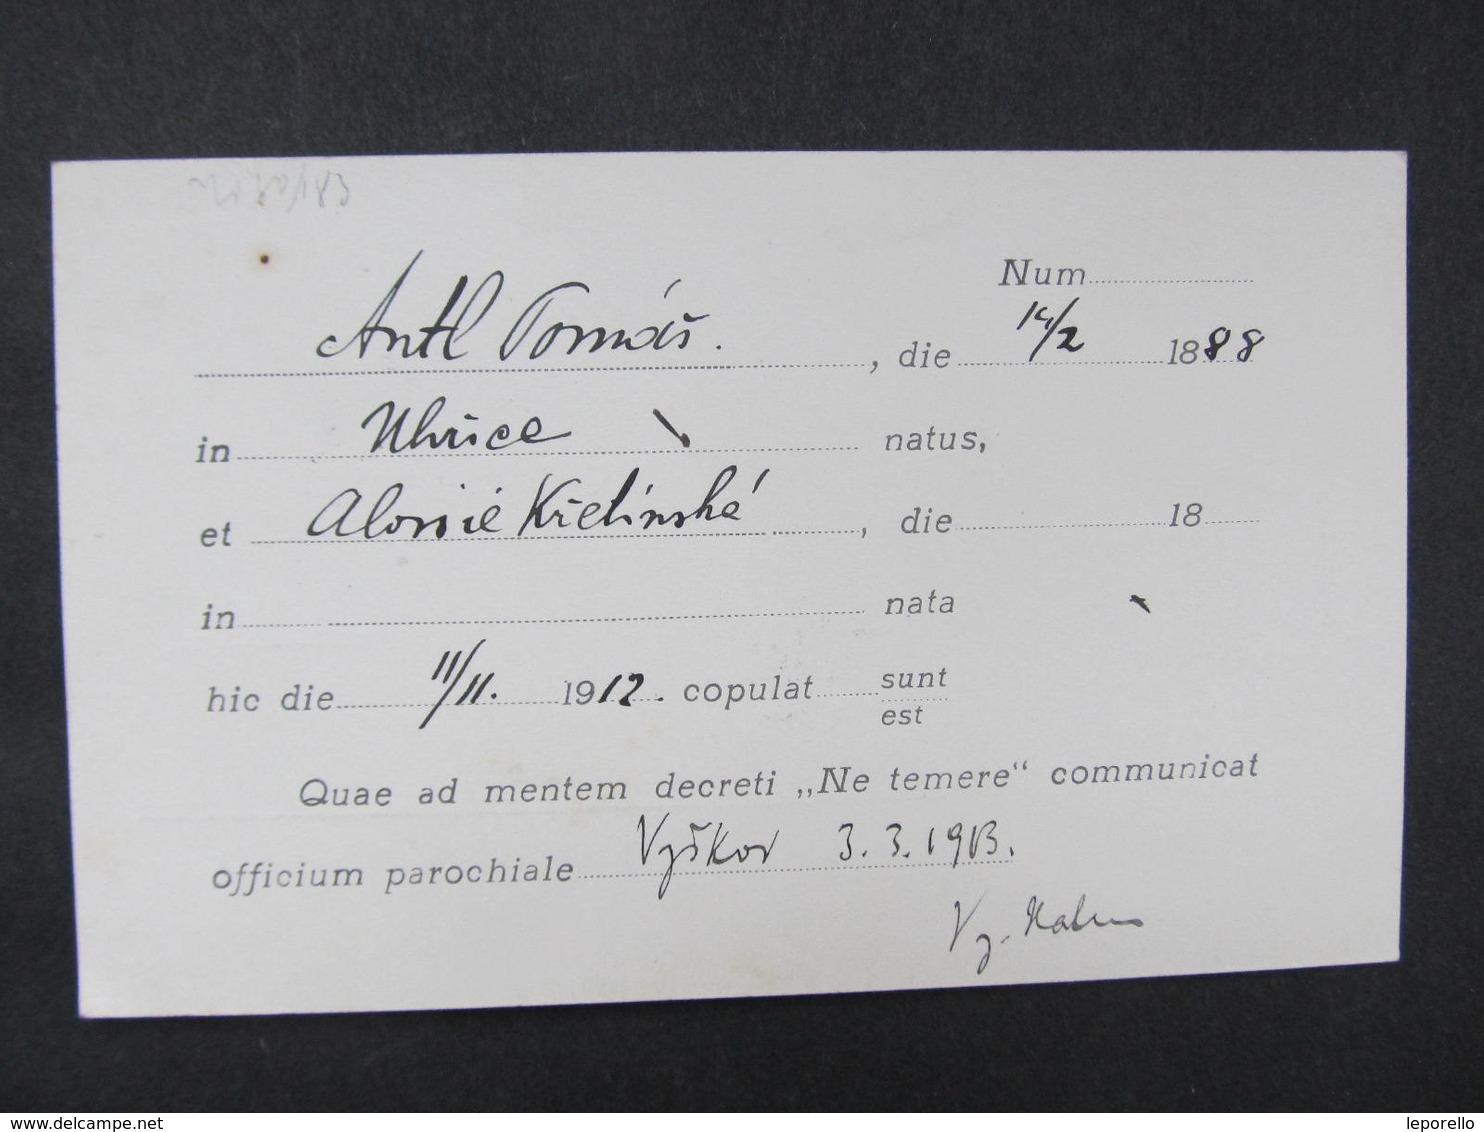 Num
Antl Tomáš. , die 14/2 1888
in Uhřice natus,
et Aloisie Křetínská , die 18
in nata
hic die 11/11. 1912. copulat sunt
est
Quae ad mentem decreti „Ne temere“ communicat
officium parochiale Vyškov 3.3.1913.
www.delcampe.net
leporello